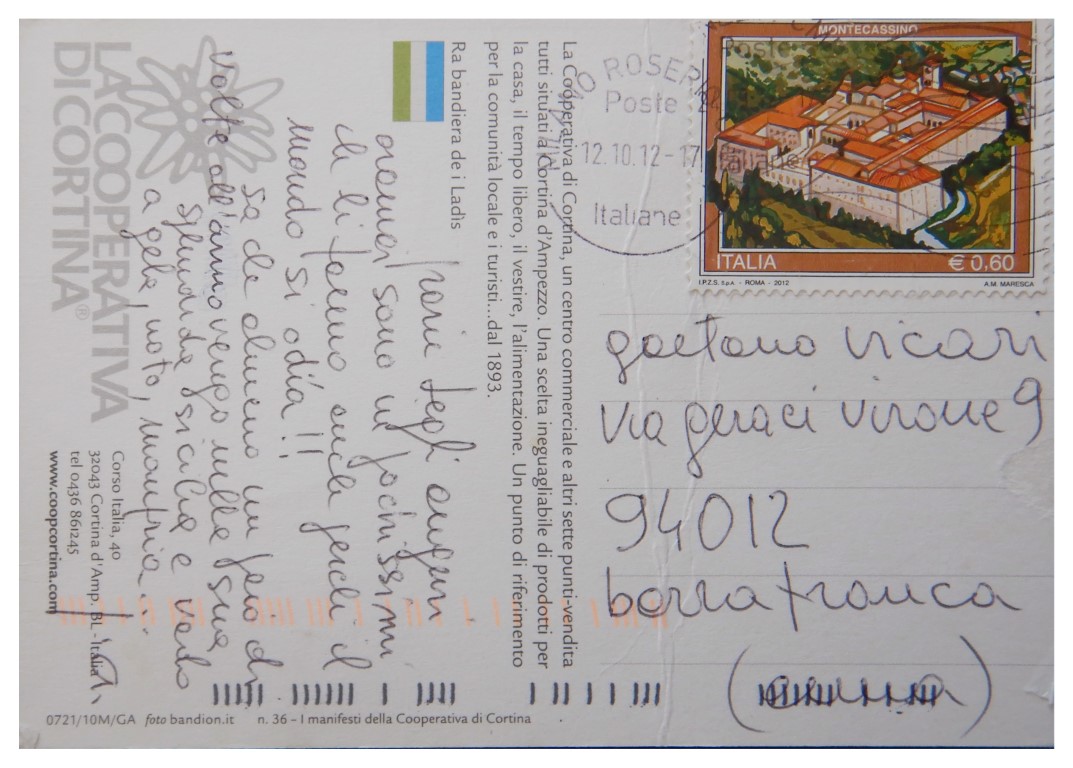 MONTECASSINO
ITALIA
€ 0,60
I.P.Z.S. S.p.A. - ROMA - 2012
A.M. MARESCA
ROSER
Poste
12.10.12-17
Italiane
gaetano vicari
via geraci virone 9
94012
barrafranca
(enna)
La Cooperativa di Cortina, un centro commerciale e altri sette punti-vendita
tutti situati a Cortina d'Ampezzo. Una scelta ineguagliabile di prodotti per
la casa, il tempo libero, il vestire, l'alimentazione. Un punto di riferimento
per la comunità locale e i turisti...dal 1893.
Ra bandiera de i Ladis
degli auguri
ormai sono un pochissimi
che li fanno anche perché il
mondo si odia!!
Sa che almeno un paio di
volte all'anno vengo nella sua
splendida sicilia e vado
a gela, noto, manfria.
LA COOPERATIVA
DI CORTINA®
Corso Italia, 40
32043 Cortina d'Amp. BL - Italia
tel 0436 861245
www.coopcortina.com
0721/10M/GA foto bandion.it n. 36 – I manifesti della Cooperativa di Cortina